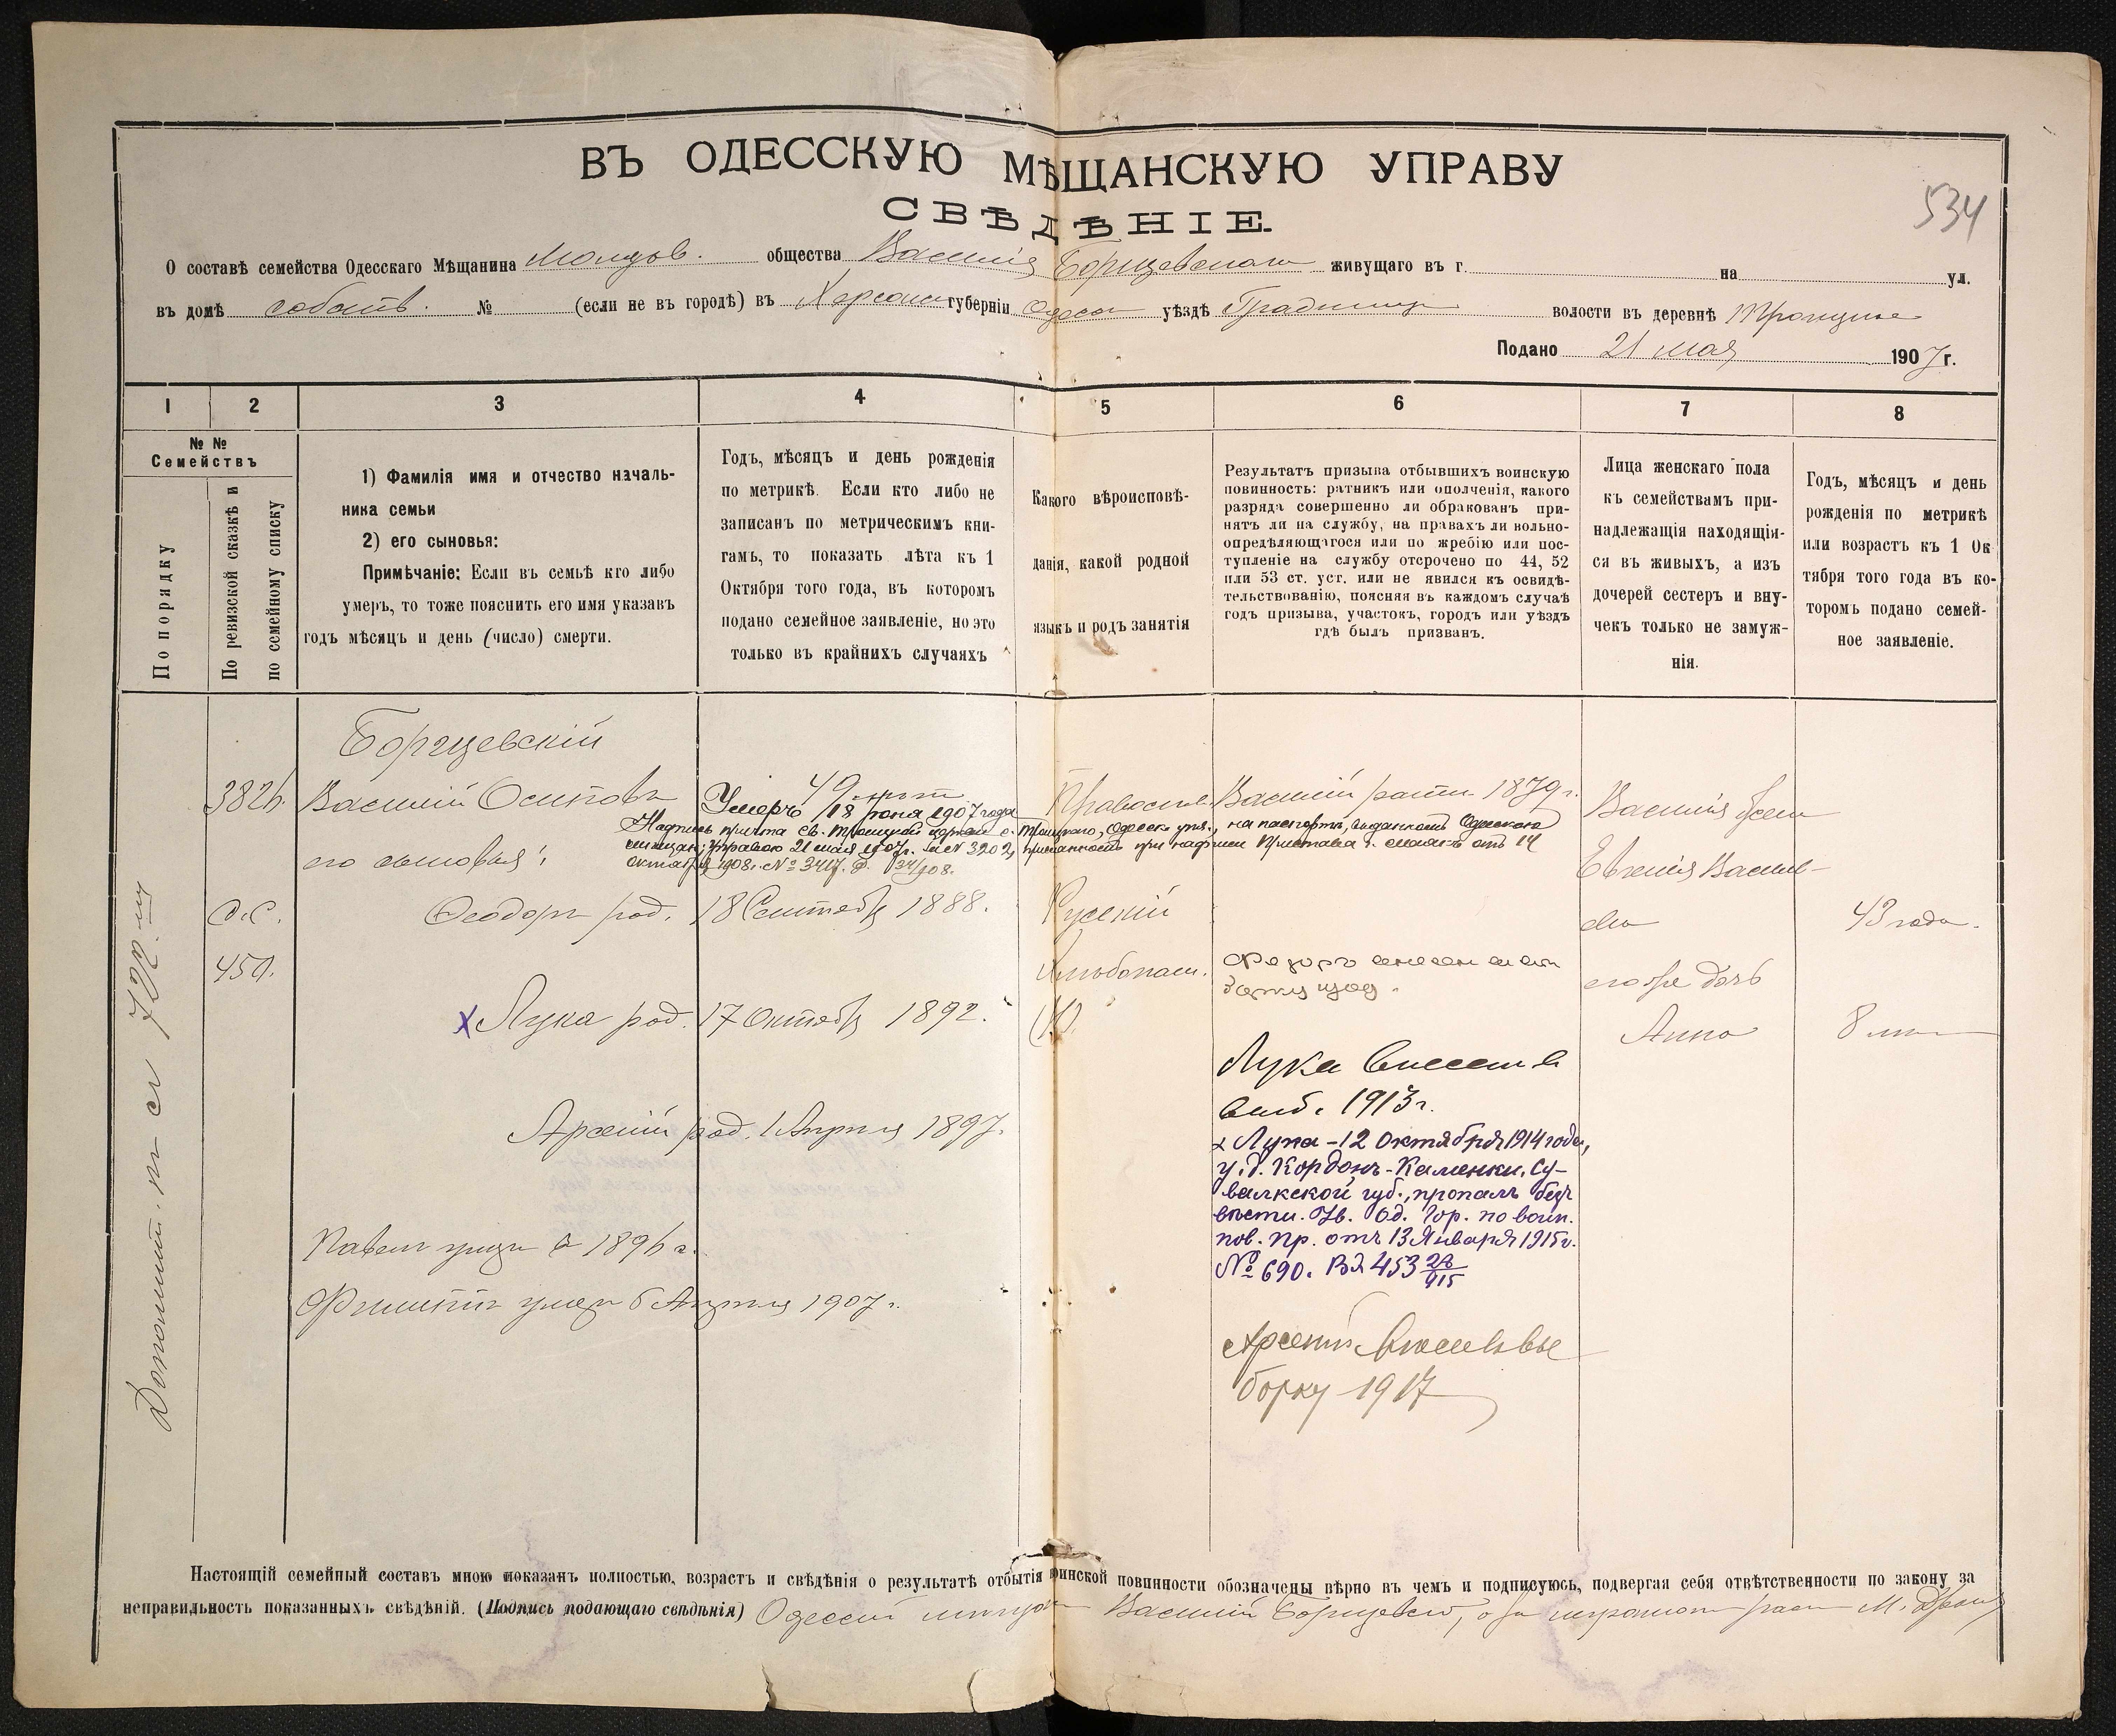 ВЪ ОДЕССКУЮ МѢЩАНСКУЮ УПРАВУ
СВѢДѢНІЕ.
534
О составѣ семейства Одесскаго Мѣщанина Молдов. общества Василія Борщевскаго живущаго въ г. на ул.
въ домѣ собств. № (если не въ городѣ) въ Херсон губерніи Одесс уѣздѣ Градениц волости въ деревнѣ Троицкое
Подано 21 мая 1907 г.
1 2 3 4 5 6 7 8
№ №
Семействъ
По порядку
По ревизской сказкѣ и
по семейному списку
1) Фамилія имя и отчество началь-
ника семьи
2) его сыновья:
Примѣчаніе: Если въ семьѣ кто либо
умеръ, то тоже пояснить его имя указавъ
годъ мѣсяцъ и день (число) смерти.
Годъ, мѣсяцъ и день рожденія
по метрикѣ. Если кто либо не
записанъ по метрическимъ кни-
гамъ, то показать лѣта къ 1
Октября того года, въ которомъ
подано семейное заявленіе, но это
только въ крайнихъ случаяхъ
Какого вѣроисповѣ-
данія, какой родной
языкъ и родъ занятія
Результатъ призыва отбывшихъ воинскую
повинность: ратникъ или ополченія, какого
разряда совершенно ли обракованъ при-
нятъ ли на службу, на правахъ ли вольно-
опредѣляющагося или по жребію или пос-
тупленіе на службу отсрочено по 44, 52
или 53 ст. уст. или не явился къ освидѣ-
тельствованію, поясняя въ каждомъ случаѣ
годъ призыва, участокъ, городъ или уѣздъ
гдѣ былъ призванъ.
Лица женскаго пола
къ семействамъ при-
надлежащія находящія-
ся въ живыхъ, а изъ
дочерей сестеръ и вну-
чекъ только не замуж-
нія.
Годъ, мѣсяцъ и день
рожденія по метрикѣ
или возрастъ къ 1 Ок-
тября того года въ ко-
торомъ подано семей-
ное заявленіе.
Борщевскій
382 Василій Осиповъ 49 лѣт
Умеръ 18 1907 года
Надпись причта Св. Троицкой церкви с. Троицкаго, Одесск. уѣз., на паспортѣ, выданномъ Одесскою
мѣщан. управою 21 мая 1907 г. за № 3202, при надписи Пристава отъ 14
октября 1908 г. № 3417.
его сыновья:
О.С.
450.
Ѳеодоръ род. 18 Сентября 1888.
х Лука род. 17 Октября 1892.
Арсеній род. 1 Апрѣля 1897.
Павелъ умеръ в 1896 г.
Филиппъ умеръ 6 Апрѣля 1907 г.
Православ.
Русскій
Хлѣбопаш.
Василій ратн 1879 г.
Федоръ
Лука внесенъ в
выб. 1913 г.
х Лука - 12 Октября 1914 года,
у д. Кордонъ-Каменки, Су-
валкской губ., пропалъ безъ
вѣсти. Ув. Од. Гор. по воин.
пов. пр. отъ 13 Января 1915 г.
№ 690. Вх 453 28/915
Арсеній
борку 1917
Василія жена
Евгенія Васил-
ева 43 года.
его же дочь
Анна 8 лѣт
Настоящій семейный составъ мною показанъ полностью, возрастъ и свѣдѣнія о результатѣ отбытія воинской повинности обозначены вѣрно въ чемъ и подписуюсь, подвергая себя отвѣтственности по закону за
неправильность показанныхъ свѣдѣній. (Подпись подающаго свѣдѣнія) Одесскій мѣщан Василій Борщевскій, а за неграмотн расп М.